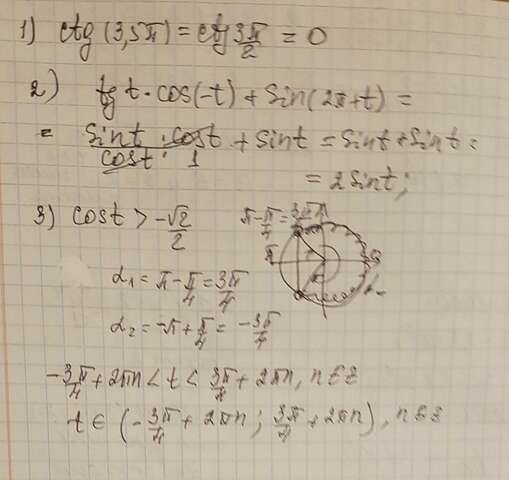 1) ctg (3,5π) = ctg 3π/2 = 0
2) tg t · cos(-t) + sin(2π+t) =
= sin t · cos t / cos t · 1 + sin t = sin t + sin t =
= 2 sin t;
3) cos t > -√2/2
π - π/4 = 3π/4
π
α₁ = π - π/4 = 3π/4
α₂ = -π + π/4 = -3π/4
-3π/4 + 2πn < t < 3π/4 + 2πn, n∈Z
t ∈ (-3π/4 + 2πn ; 3π/4 + 2πn), n∈Z